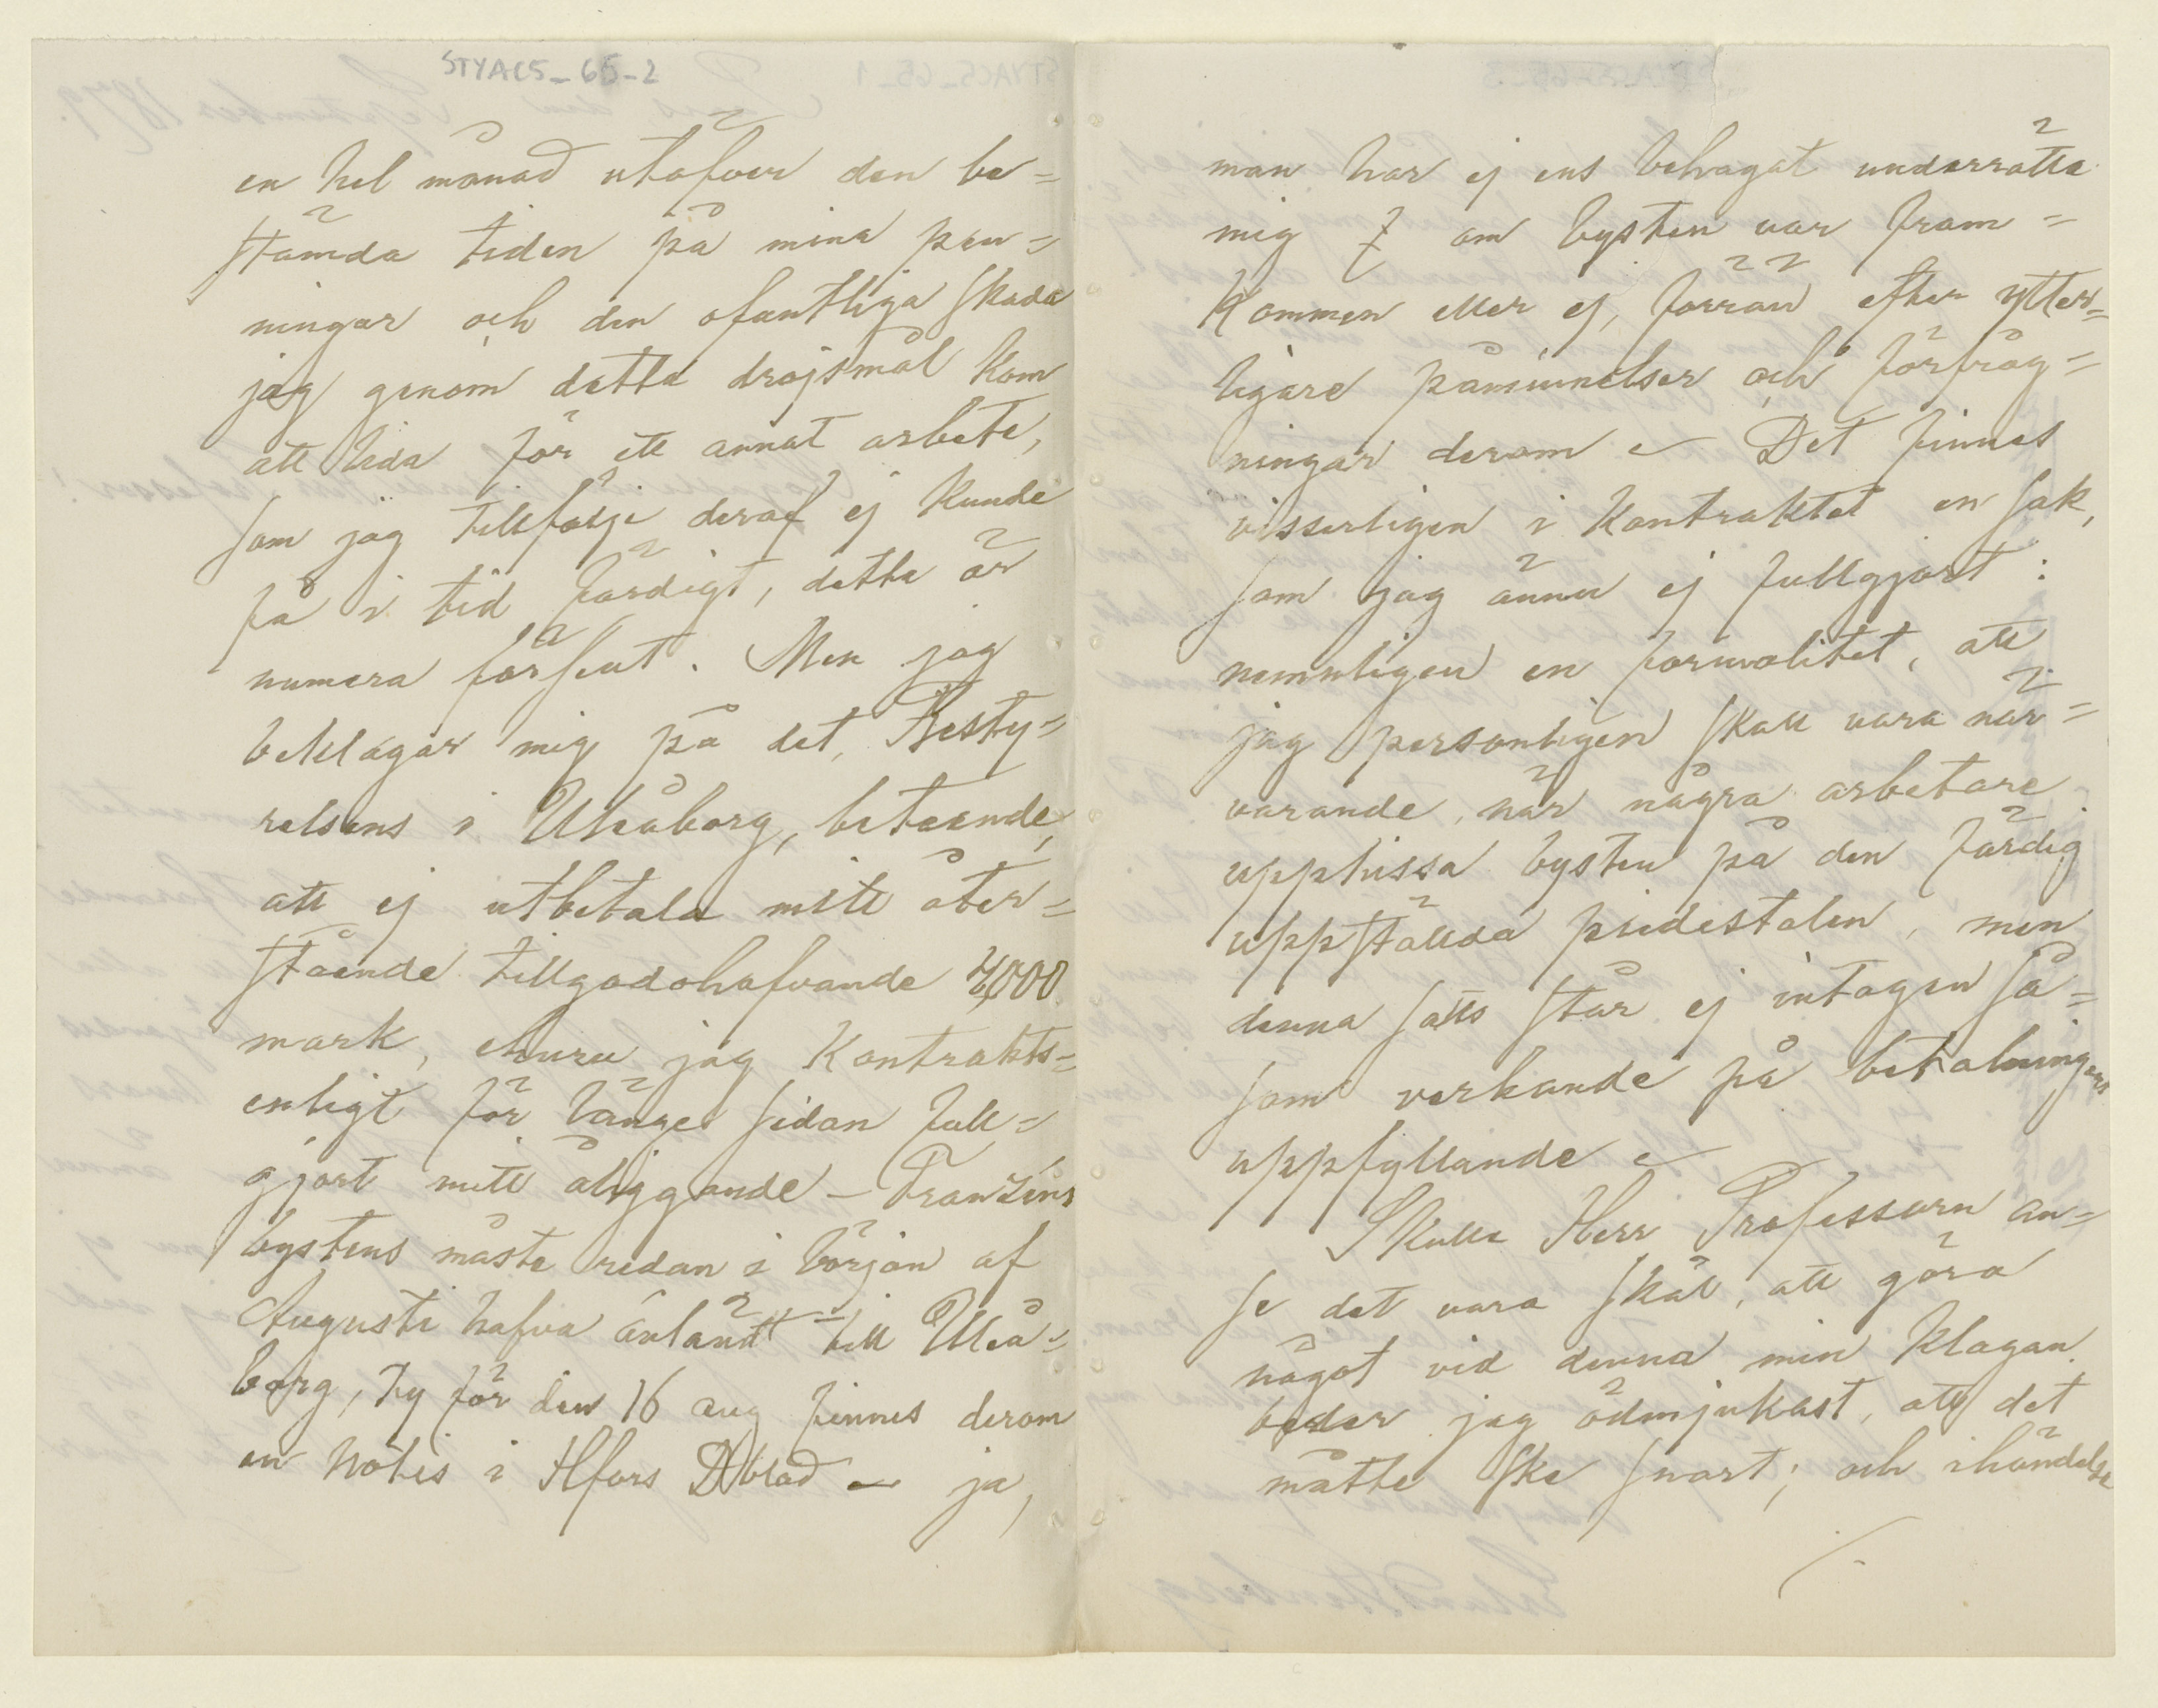 STYACS_65_2
en hel månad utöfver den be=
stämda tiden på mina pen=
ningar och den ofantliga skada
jag genom detta dröjsmål kom
att lida för ett annat arbete,
som jag tillfölje deraf ej kunde
få i tid färdigt, detta är
numera försent. Men jag
beklagar mig på det, Besty=
relsens i Uleåborg, beteende,
att ej utbetala mitt åter=
stående tillgodohafvande 4,000
mark, ehuru jag Kontrakts=
enligt för länge sedan full=
gjort mitt åliggande – Franzéns
bystens måste redan i början af
Augusti hafva anländt till Uleå=
borg, ty för den 16 aug finnes derom
en notis i Hfors Dblad – ja,
man har ej ens behagat underrätta
mig om bysten var fram=
kommen eller ej, förrän efter ytter=
ligare påminnelser och förfråg=
ningar derom – Det finnes
visserligen i Kontraktet en sak,
som jag ännu ej fullgjort :
nemnligen en formalitet, att
jag personligen skall vara när=
varande, när några arbetare
upphissa bysten på den färdig
uppställda piedestalen, men
denna satts står ej intagen så=
som verkande på betalningens
uppfyllande –
Skulle Herr Professorn an=
se det vara skäl, att göra
något vid denna min klagan
beder jag ödmjukast, att det
måtte ske snart; och ihändelse